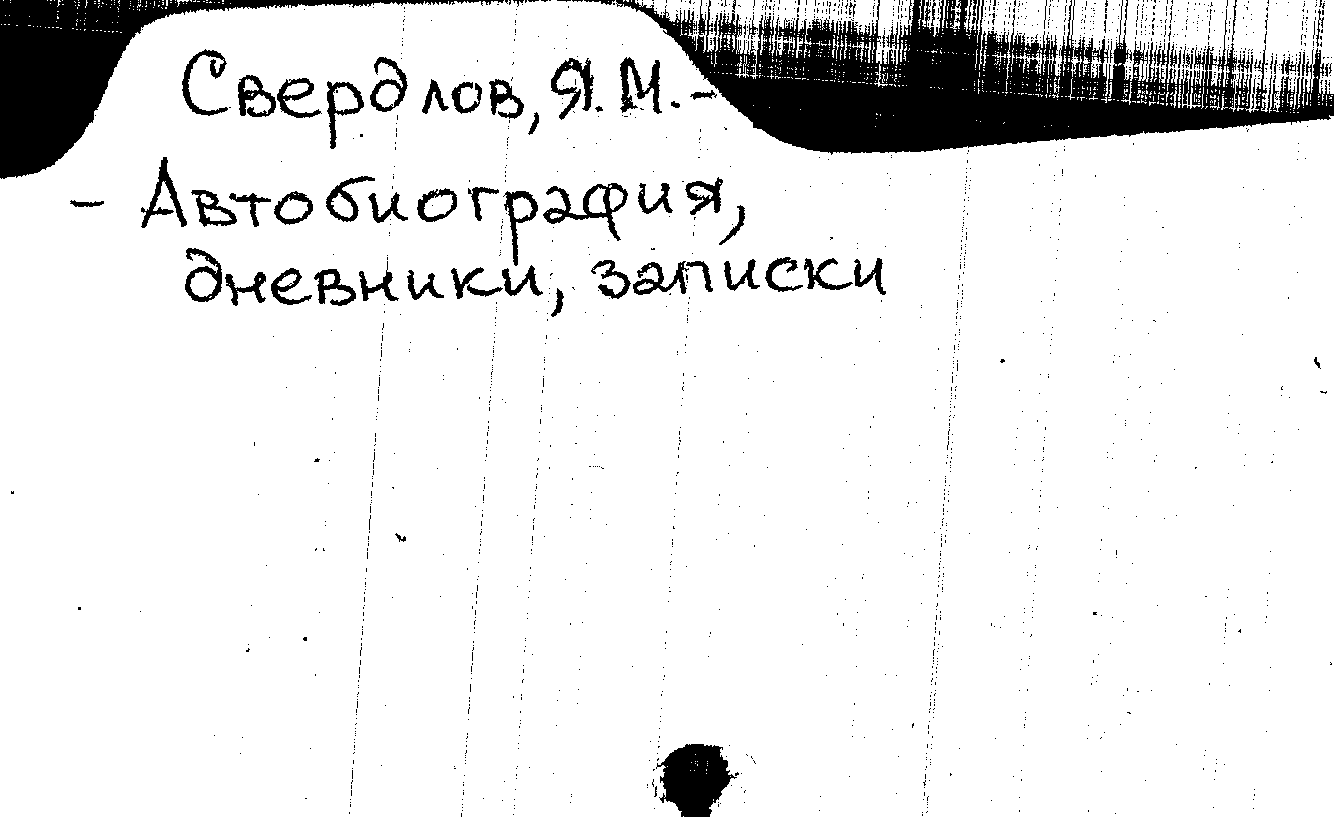 Свердлов, Я.М. -
- Автобиография,
дневники, записки